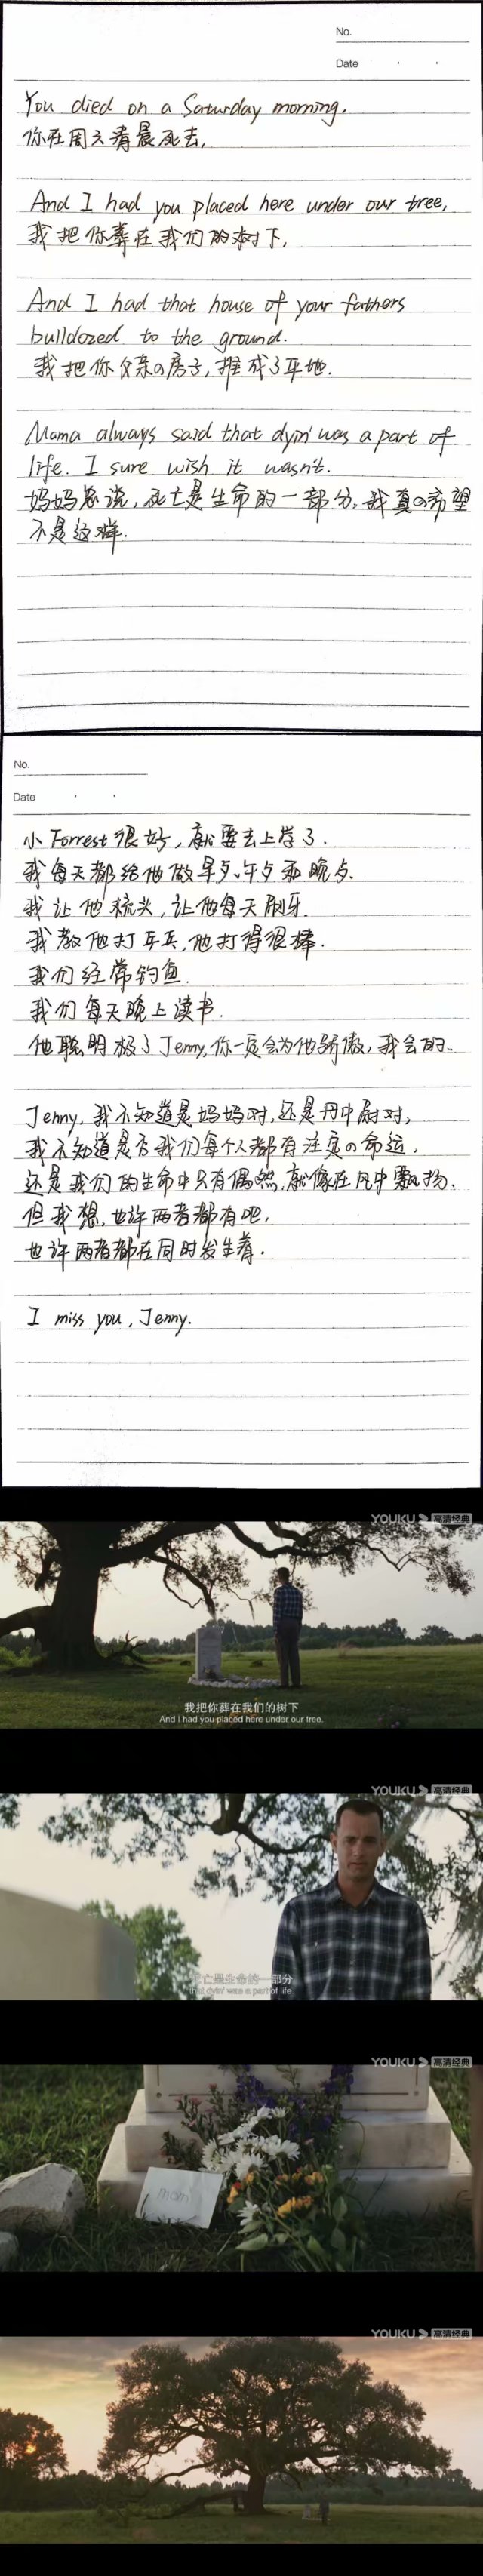 No.
Date
You died on a Saturday morning.
你在周六清晨死去,
And I had you placed here under our tree,
我把你葬在我们的树下,
And I had that house of your fathers
bulldozed to the ground.
我把你父亲の房子,推成了平地.
Mama always said that dyin' was a part of
life. I sure wish it wasn't.
妈妈总说,死亡是生命的一部分,我真の希望
不是这样.
No.
Date
小Forrest很好,就要去上学了.
我每天都给他做早歺、午歺和晚歺.
我让他梳头,让他每天刷牙.
我教他打乒乓,他打得很棒.
我们经常钓鱼.
我们每天晚上读书.
他聪明极了Jenny,你一定会为他骄傲,我会的.
Jenny,我不知道是妈妈对,还是丹中尉对,
我不知道是否我们每个人都有注定の命运,
还是我们的生命中只有偶然,就像在风中飘扬.
但我想,也许两者都有吧,
也许两者都在同时发生着.
I miss you, Jenny.
YOUKU 高清经典
我把你葬在我们的树下
And I had you placed here under our tree.
YOUKU 高清经典
亡是生命的一部分
that dyin' was a part of life
YOUKU 高清经典
mom
YOUKU 高清经典